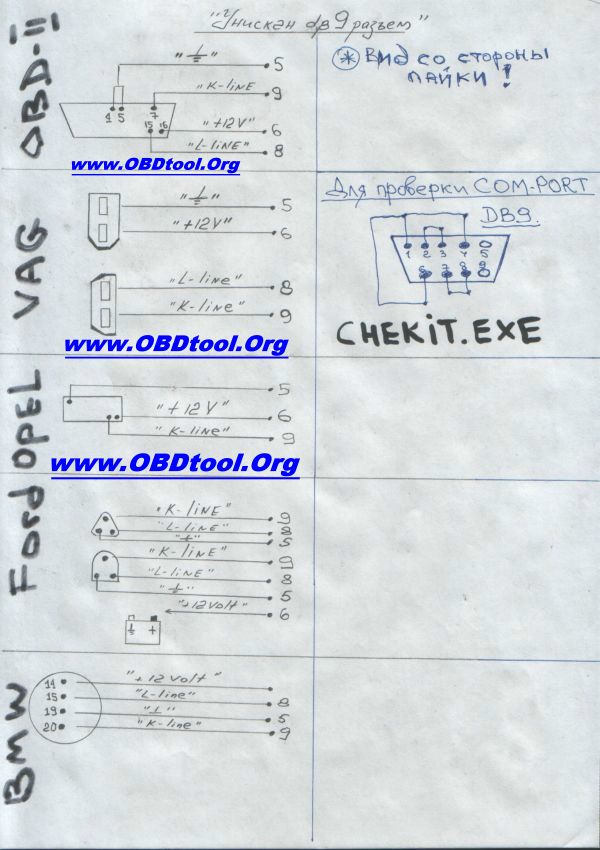 "Унискан db9 разъем"
OBD-II
"⏚" 5
"K-LINE" 9
4 5 7
15 16
"+12V" 6
"L-LINE" 8
www.OBDtool.Org
* Вид со стороны
пайки!
VAG
"⏚" 5
"+12V" 6
"L-Line" 8
"K-line" 9
www.OBDtool.Org
Для проверки COM-PORT
DB9.
1 2 3 4 5
6 7 8 9
CHEKiT.EXE
OPEL
5
"+12V" 6
"K-line" 9
www.OBDtool.Org
Ford
"K-LINE" 9
"L-LINE" 8
"⏚" 5
"K-LINE" 9
"L-LINE" 8
"⏚" 5
"+12Volt" 6
⏚ +
BMW
14 "+12Volt"
15 "L-line" 8
19 "⏚" 5
20 "K-line" 9